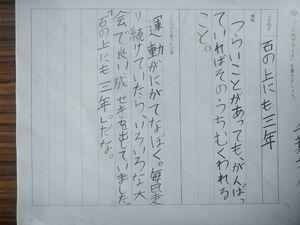 石の上にも三年
つらいことがあっても、がんばっ
ていればそのうちむくわれる
こと。
運動がにがてなぼく。毎日走
り続けていたら、いろいろな大
会で良い成せきを出していました。
「石の上にも三年。」だな。